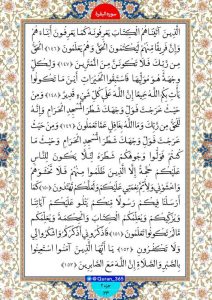 سورة البقرة
الَّذِينَ آتَيْنَاهُمُ الْكِتَابَ يَعْرِفُونَهُ كَمَا يَعْرِفُونَ أَبْنَاءَهُمْ
وَإِنَّ فَرِيقًا مِنْهُمْ لَيَكْتُمُونَ الْحَقَّ وَهُمْ يَعْلَمُونَ ﴿١٤٦﴾ الْحَقُّ
مِنْ رَبِّكَ فَلَا تَكُونَنَّ مِنَ الْمُمْتَرِينَ ﴿١٤٧﴾ وَلِكُلٍّ
وِجْهَةٌ هُوَ مُوَلِّيهَا فَاسْتَبِقُوا الْخَيْرَاتِ أَيْنَ مَا تَكُونُوا
يَأْتِ بِكُمُ اللَّهُ جَمِيعًا إِنَّ اللَّهَ عَلَى كُلِّ شَيْءٍ قَدِيرٌ ﴿١٤٨﴾ وَمِنْ
حَيْثُ خَرَجْتَ فَوَلِّ وَجْهَكَ شَطْرَ الْمَسْجِدِ الْحَرَامِ وَإِنَّهُ
لَلْحَقُّ مِنْ رَبِّكَ وَمَا اللَّهُ بِغَافِلٍ عَمَّا تَعْمَلُونَ ﴿١٤٩﴾ وَمِنْ حَيْثُ
خَرَجْتَ فَوَلِّ وَجْهَكَ شَطْرَ الْمَسْجِدِ الْحَرَامِ وَحَيْثُ مَا
كُنْتُمْ فَوَلُّوا وُجُوهَكُمْ شَطْرَهُ لِئَلَّا يَكُونَ لِلنَّاسِ
عَلَيْكُمْ حُجَّةٌ إِلَّا الَّذِينَ ظَلَمُوا مِنْهُمْ فَلَا تَخْشَوْهُمْ
وَاخْشَوْنِي وَلِأُتِمَّ نِعْمَتِي عَلَيْكُمْ وَلَعَلَّكُمْ تَهْتَدُونَ ﴿١٥٠﴾ كَمَا
أَرْسَلْنَا فِيكُمْ رَسُولًا مِنْكُمْ يَتْلُو عَلَيْكُمْ آيَاتِنَا
وَيُزَكِّيكُمْ وَيُعَلِّمُكُمُ الْكِتَابَ وَالْحِكْمَةَ وَيُعَلِّمُكُمْ
مَا لَمْ تَكُونُوا تَعْلَمُونَ ﴿١٥١﴾ فَاذْكُرُونِي أَذْكُرْكُمْ وَاشْكُرُوا لِي
وَلَا تَكْفُرُونِ ﴿١٥٢﴾ يَا أَيُّهَا الَّذِينَ آمَنُوا اسْتَعِينُوا
بِالصَّبْرِ وَالصَّلَاةِ إِنَّ اللَّهَ مَعَ الصَّابِرِينَ ﴿١٥٣﴾
@Quran_365
جزء ٢
٢٣